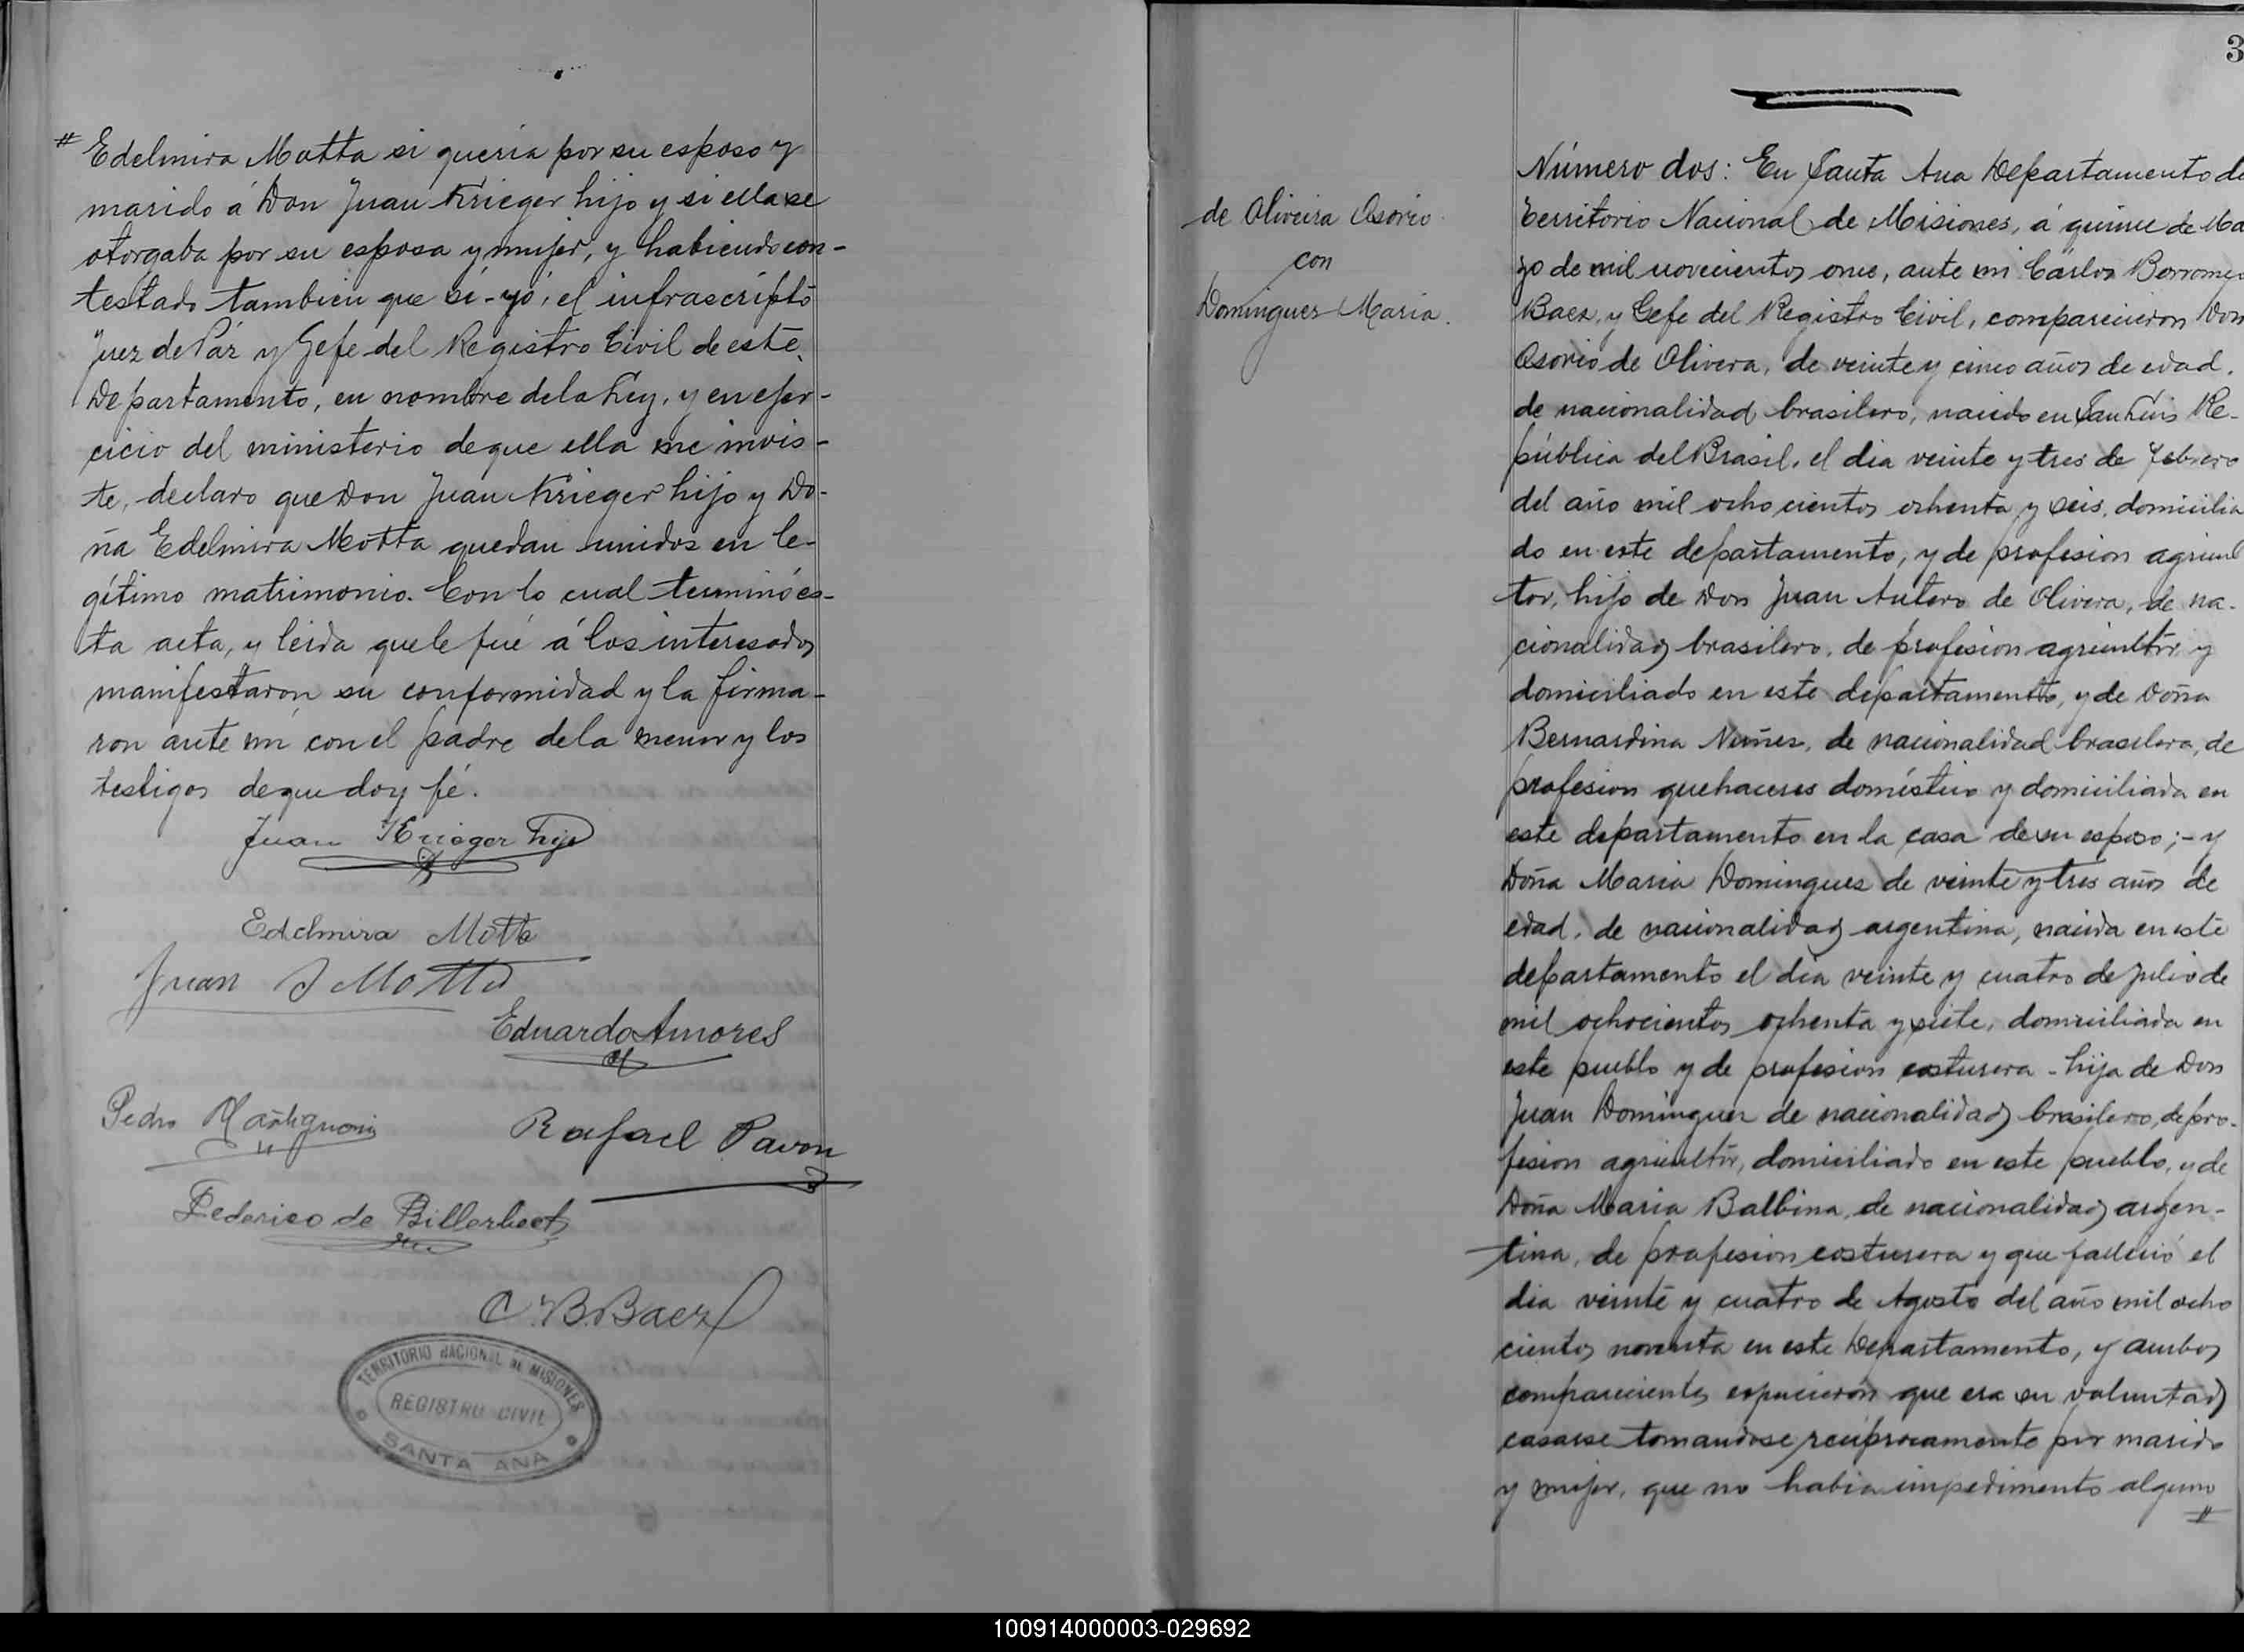 # Edelmira Motta si queria por su esposo y
marido á Don Juan Krieger hijo y si ella se
otorgaba por su esposa y mujer, y habiendo con-
testado tambien que si - yo, el infrascripto
Juez de Páz y Gefe del Registro Civil de este
Departamento, en nombre de la Ley, y en ejer-
cicio del ministerio de que ella me invis-
te, declaro que Don Juan Krieger hijo y Do-
ña Edelmira Motta quedan unidos en le-
gítimo matrimonio. Con lo cual terminó es-
ta acta, y leida que le fué á los interesados
manifestaron su conformidad y la firma-
ron ante mi con el padre de la menor y los
testigos de que doy fé.
Juan Krieger hijo
Edelmira Motta
Juan Motta
Eduardo Amores
Pedro
Rafael Pavon
Federico de Billerbeck
C. B. Baez
TERRITORIO NACIONAL DE MISIONES
REGISTRO CIVIL
SANTA ANA
3
de Oliveira Osorio
con
Dominguez Maria.
Número dos: En Santa Ana Departamento de
Territorio Nacional de Misiones, á quince de Ma
yo de mil novecientos once, ante mi Cárlos Borromeo
Baez, y Gefe del Registro Civil, comparecieron Don
Osorio de Olivera, de veinte y cinco años de edad,
de nacionalidad brasilero, nacido en San Luis Re-
pública del Brasil, el dia veinte y tres de febrero
del año mil ocho cientos ochenta y seis, domicilia
do en este departamento, y de profesion agricul
tor, hijo de Don Juan Antero de Olivera, de na-
cionalidad brasilero, de profesion agricultor y
domiciliado en este departamento, y de Doña
Bernardina Nuñez, de nacionalidad brasilera, de
profesion quehaceres doméstico y domiciliada en
este departamento en la casa de su esposo; - y
Doña Maria Dominguez de veinte y tres años de
edad, de nacionalidad argentina, nacida en este
departamento el dia veinte y cuatro de julio de
mil ochocientos ochenta y siete, domiciliada en
este pueblo y de profesion costurera - hija de Don
Juan Dominguez de nacionalidad brasilero, de pro-
fesion agricultor, domiciliado en este pueblo, y de
Doña Maria Balbina, de nacionalidad argen-
tina, de profesion costurera y que falleció el
dia veinte y cuatro de Agosto del año mil ocho
cientos noventa en este Departamento, y ambos
comparecientes espucieron que era su voluntad
casarse tomandose reciprocamente por marido
y mujer, que no habia impedimento alguno
#
100914000003-029692